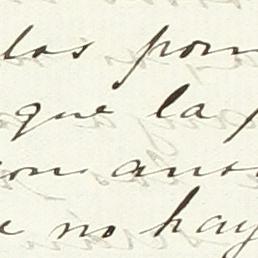 las pon
que la p
con ans
e no hay